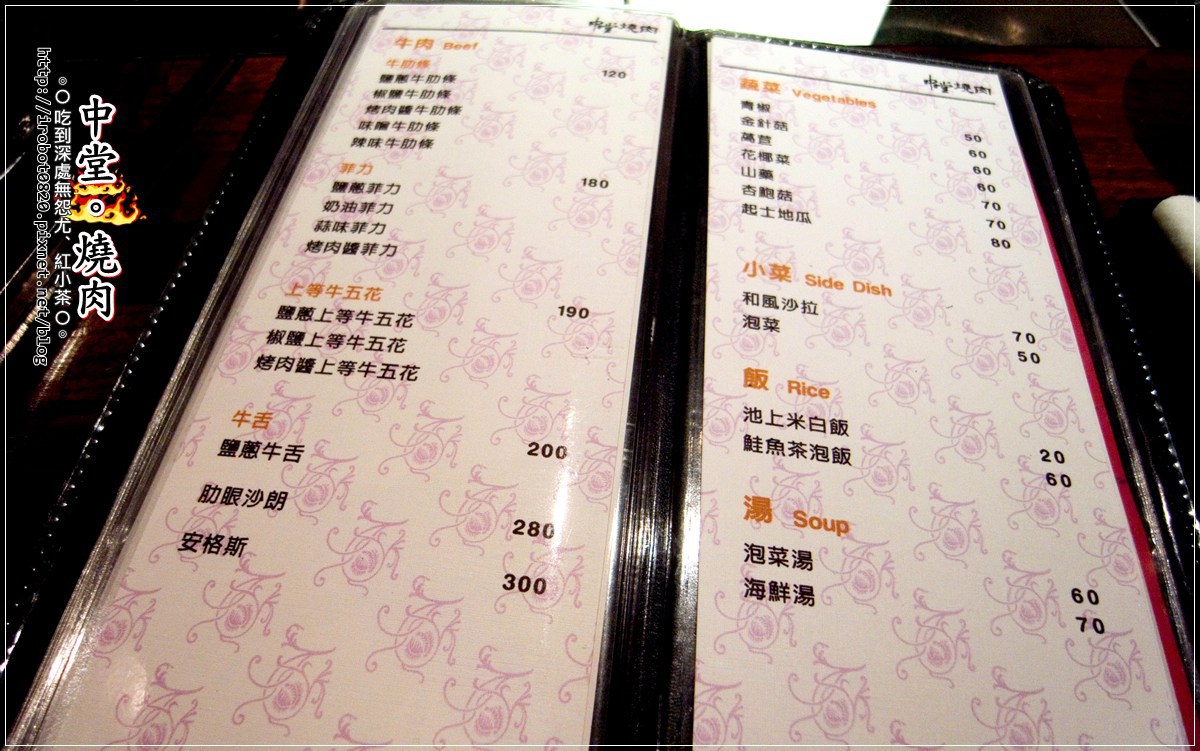 中堂。燒肉
◎O吃到深處無怨尤、紅小茶O。
http://irobot0820.pixnet.net/blog
燒肉
牛肉 Beef
牛肋條 120
鹽蔥牛肋條
椒鹽牛肋條
烤肉醬牛肋條
味噌牛肋條
辣味牛肋條
菲力 180
鹽蔥菲力
奶油菲力
蒜味菲力
烤肉醬菲力
上等牛五花 190
鹽蔥上等牛五花
椒鹽上等牛五花
烤肉醬上等牛五花
牛舌
鹽蔥牛舌 200
肋眼沙朗 280
安格斯 300
燒肉
蔬菜 Vegetables
青椒 50
金針菇 60
萵苣 60
花椰菜 60
山藥 70
杏鮑菇 70
起士地瓜 80
小菜 Side Dish
和風沙拉 70
泡菜 50
飯 Rice
池上米白飯 20
鮭魚茶泡飯 60
湯 Soup
泡菜湯 60
海鮮湯 70